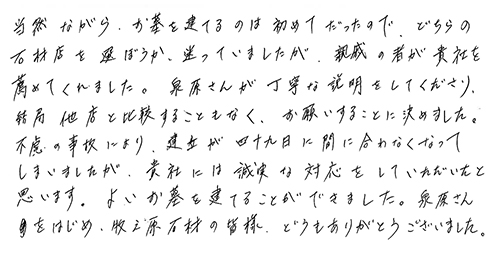 当然ながら、お墓を建てるのは初めてだったので、どちらの
石材店を選ぼうか、迷っていましたが、親戚の者が貴社を
薦めてくれました。泉原さんが丁寧な説明をしてくださり、
結局他店と比較することもなく、お願いすることに決めました。
不慮の事故により、建立が四十九日に間に合わなくなって
しまいましたが、貴社には誠実な対応をしていただいたと
思います。よいお墓を建てることができました。泉原さん
をはじめ、牧之原石材の皆様、どうもありがとうございました。